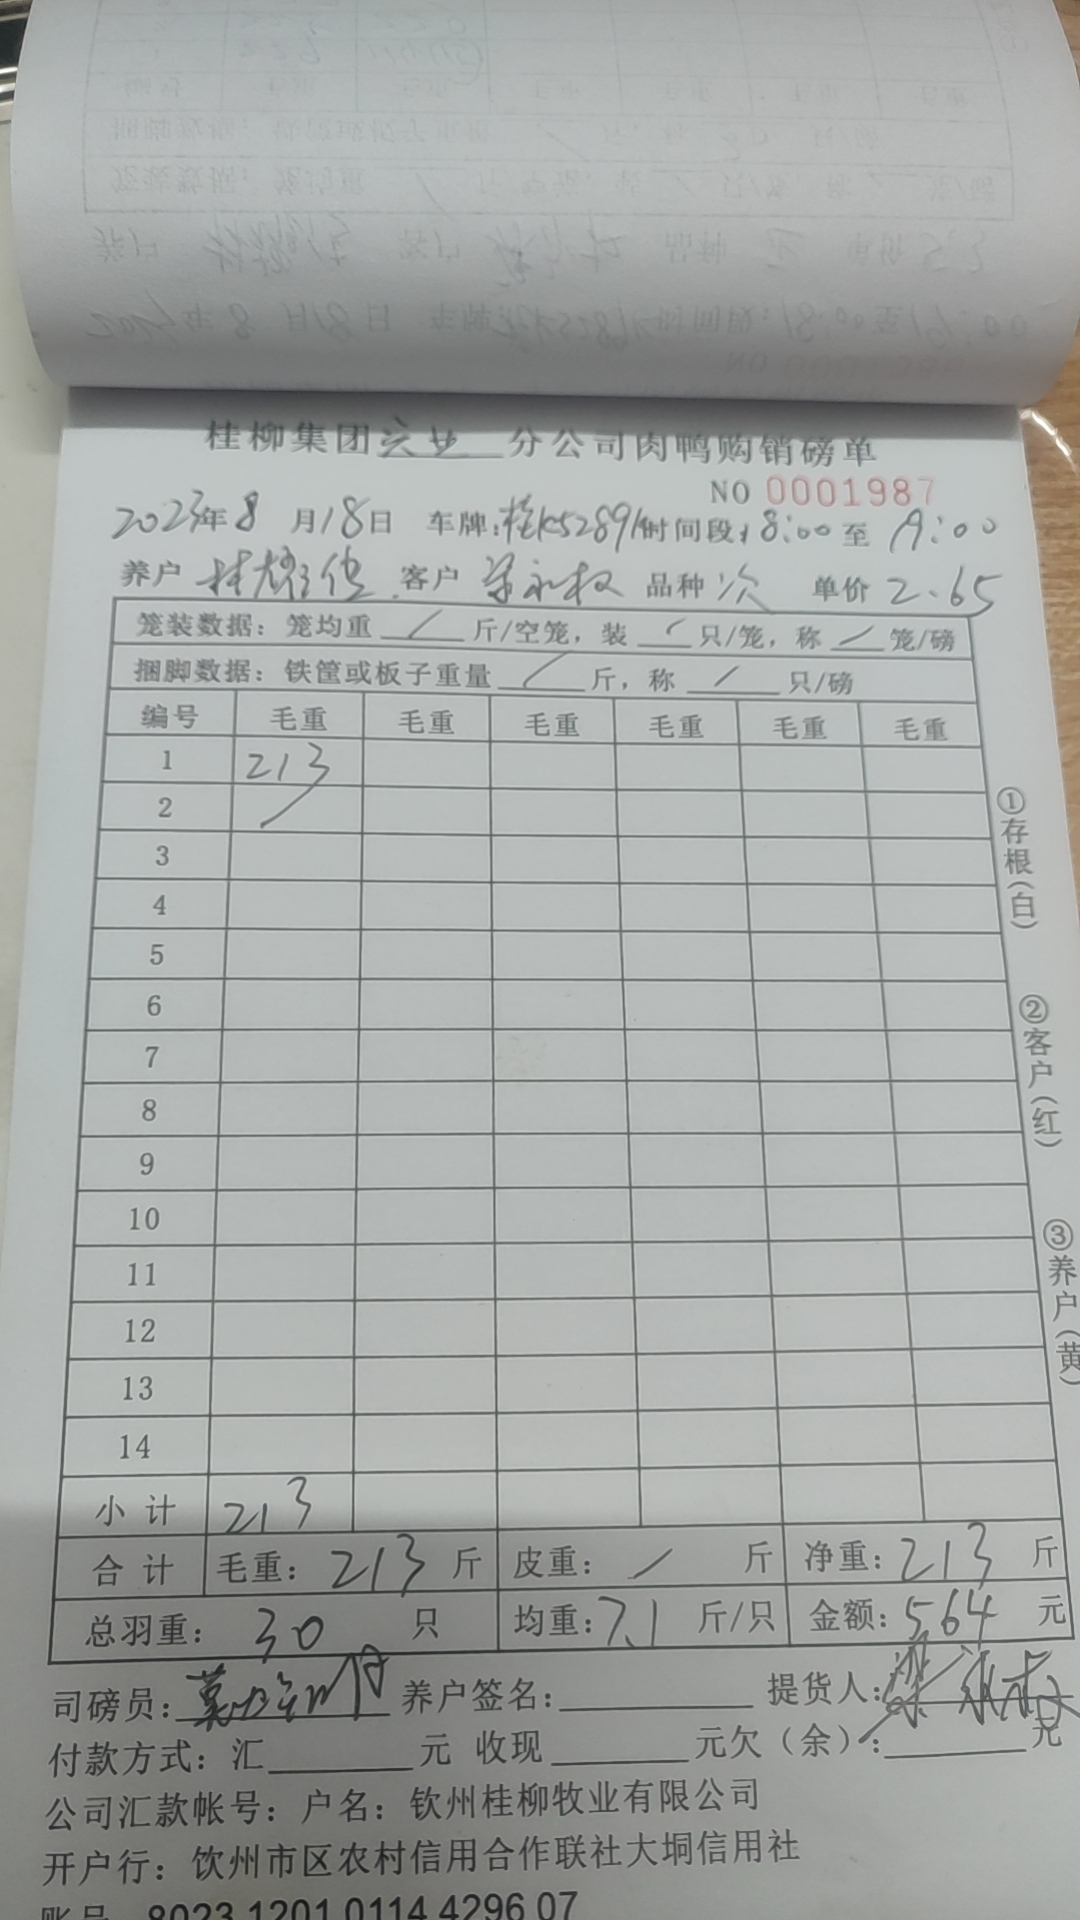 桂柳集团兴业分公司肉鸭购销磅单
NO 0001987
2023年8月18日 车牌:桂K52891 时间段:18:00至19:00
养户 林 客户 梁永权 品种 次 单价 2.65
笼装数据:笼均重 / 斤/空笼,装 / 只/笼,称 / 笼/磅
捆脚数据:铁筐或板子重量 / 斤,称 / 只/磅
编号 毛重 毛重 毛重 毛重 毛重 毛重
1 213
2 /
3
4
5
6
7
8
9
10
11
12
13
14
小计 213
合计 毛重:213 斤 皮重: / 斤 净重:213 斤
总羽重:30 只 均重:7.1 斤/只 金额:564 元
司磅员: 养户签名: 提货人:梁永权
付款方式:汇 元 收现 元欠(余): 元
公司汇款帐号:户名:钦州桂柳牧业有限公司
开户行:饮州市区农村信用合作联社大垌信用社
账号 8023 1201 0114 4296 07
①存根(白)
②客户(红)
③养户(黄)